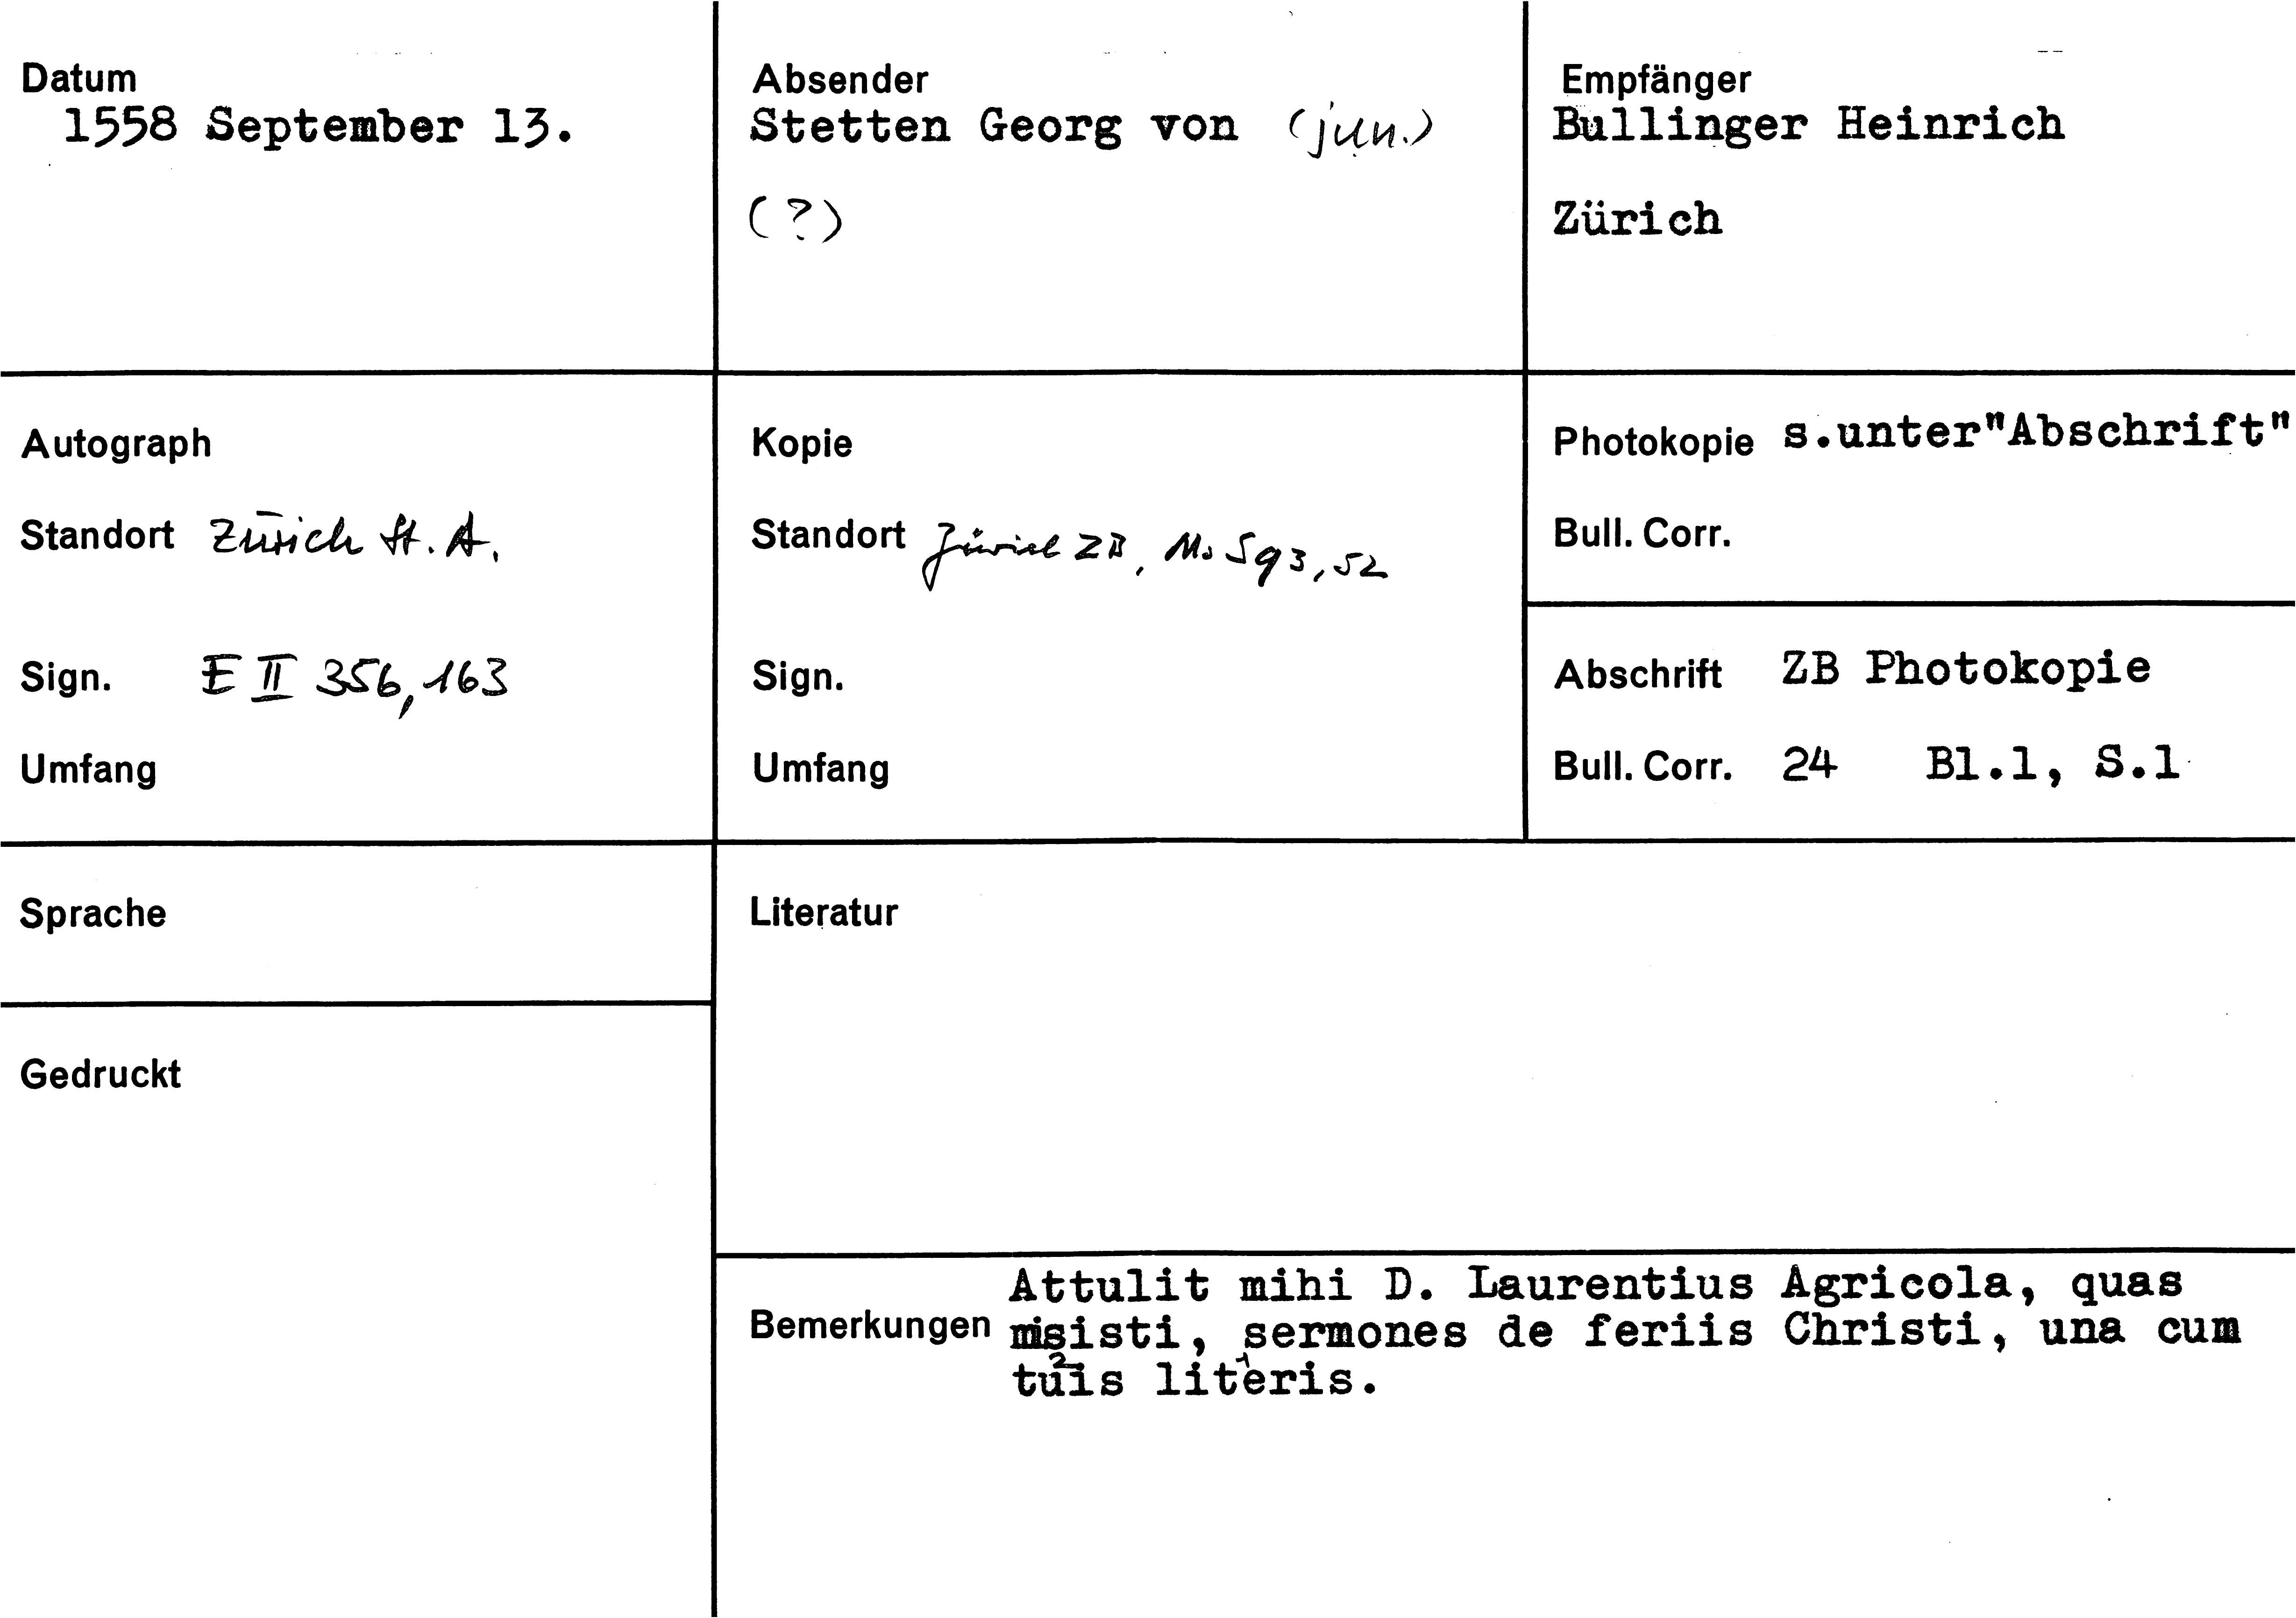 Datum
1558 September 13.
Absender
Stetten Georg von (jun.)
(?)
Empfänger
Bullinger Heinrich
Zürich
Autograph
Standort Zürich St. A.
Sign. E II 356, 163
Umfang
Kopie
Standort Zürich ZB, Ms S 93, 52
Sign.
Umfang
Photokopie s.unter"Abschrift"
Bull. Corr.
Abschrift ZB Photokopie
Bull. Corr. 24 Bl.1, S.1
Sprache
Gedruckt
Literatur
Bemerkungen
Attulit mihi D. Laurentius Agricola, quas
misisti, sermones de feriis Christi, una cum
2 1
tuis literis.